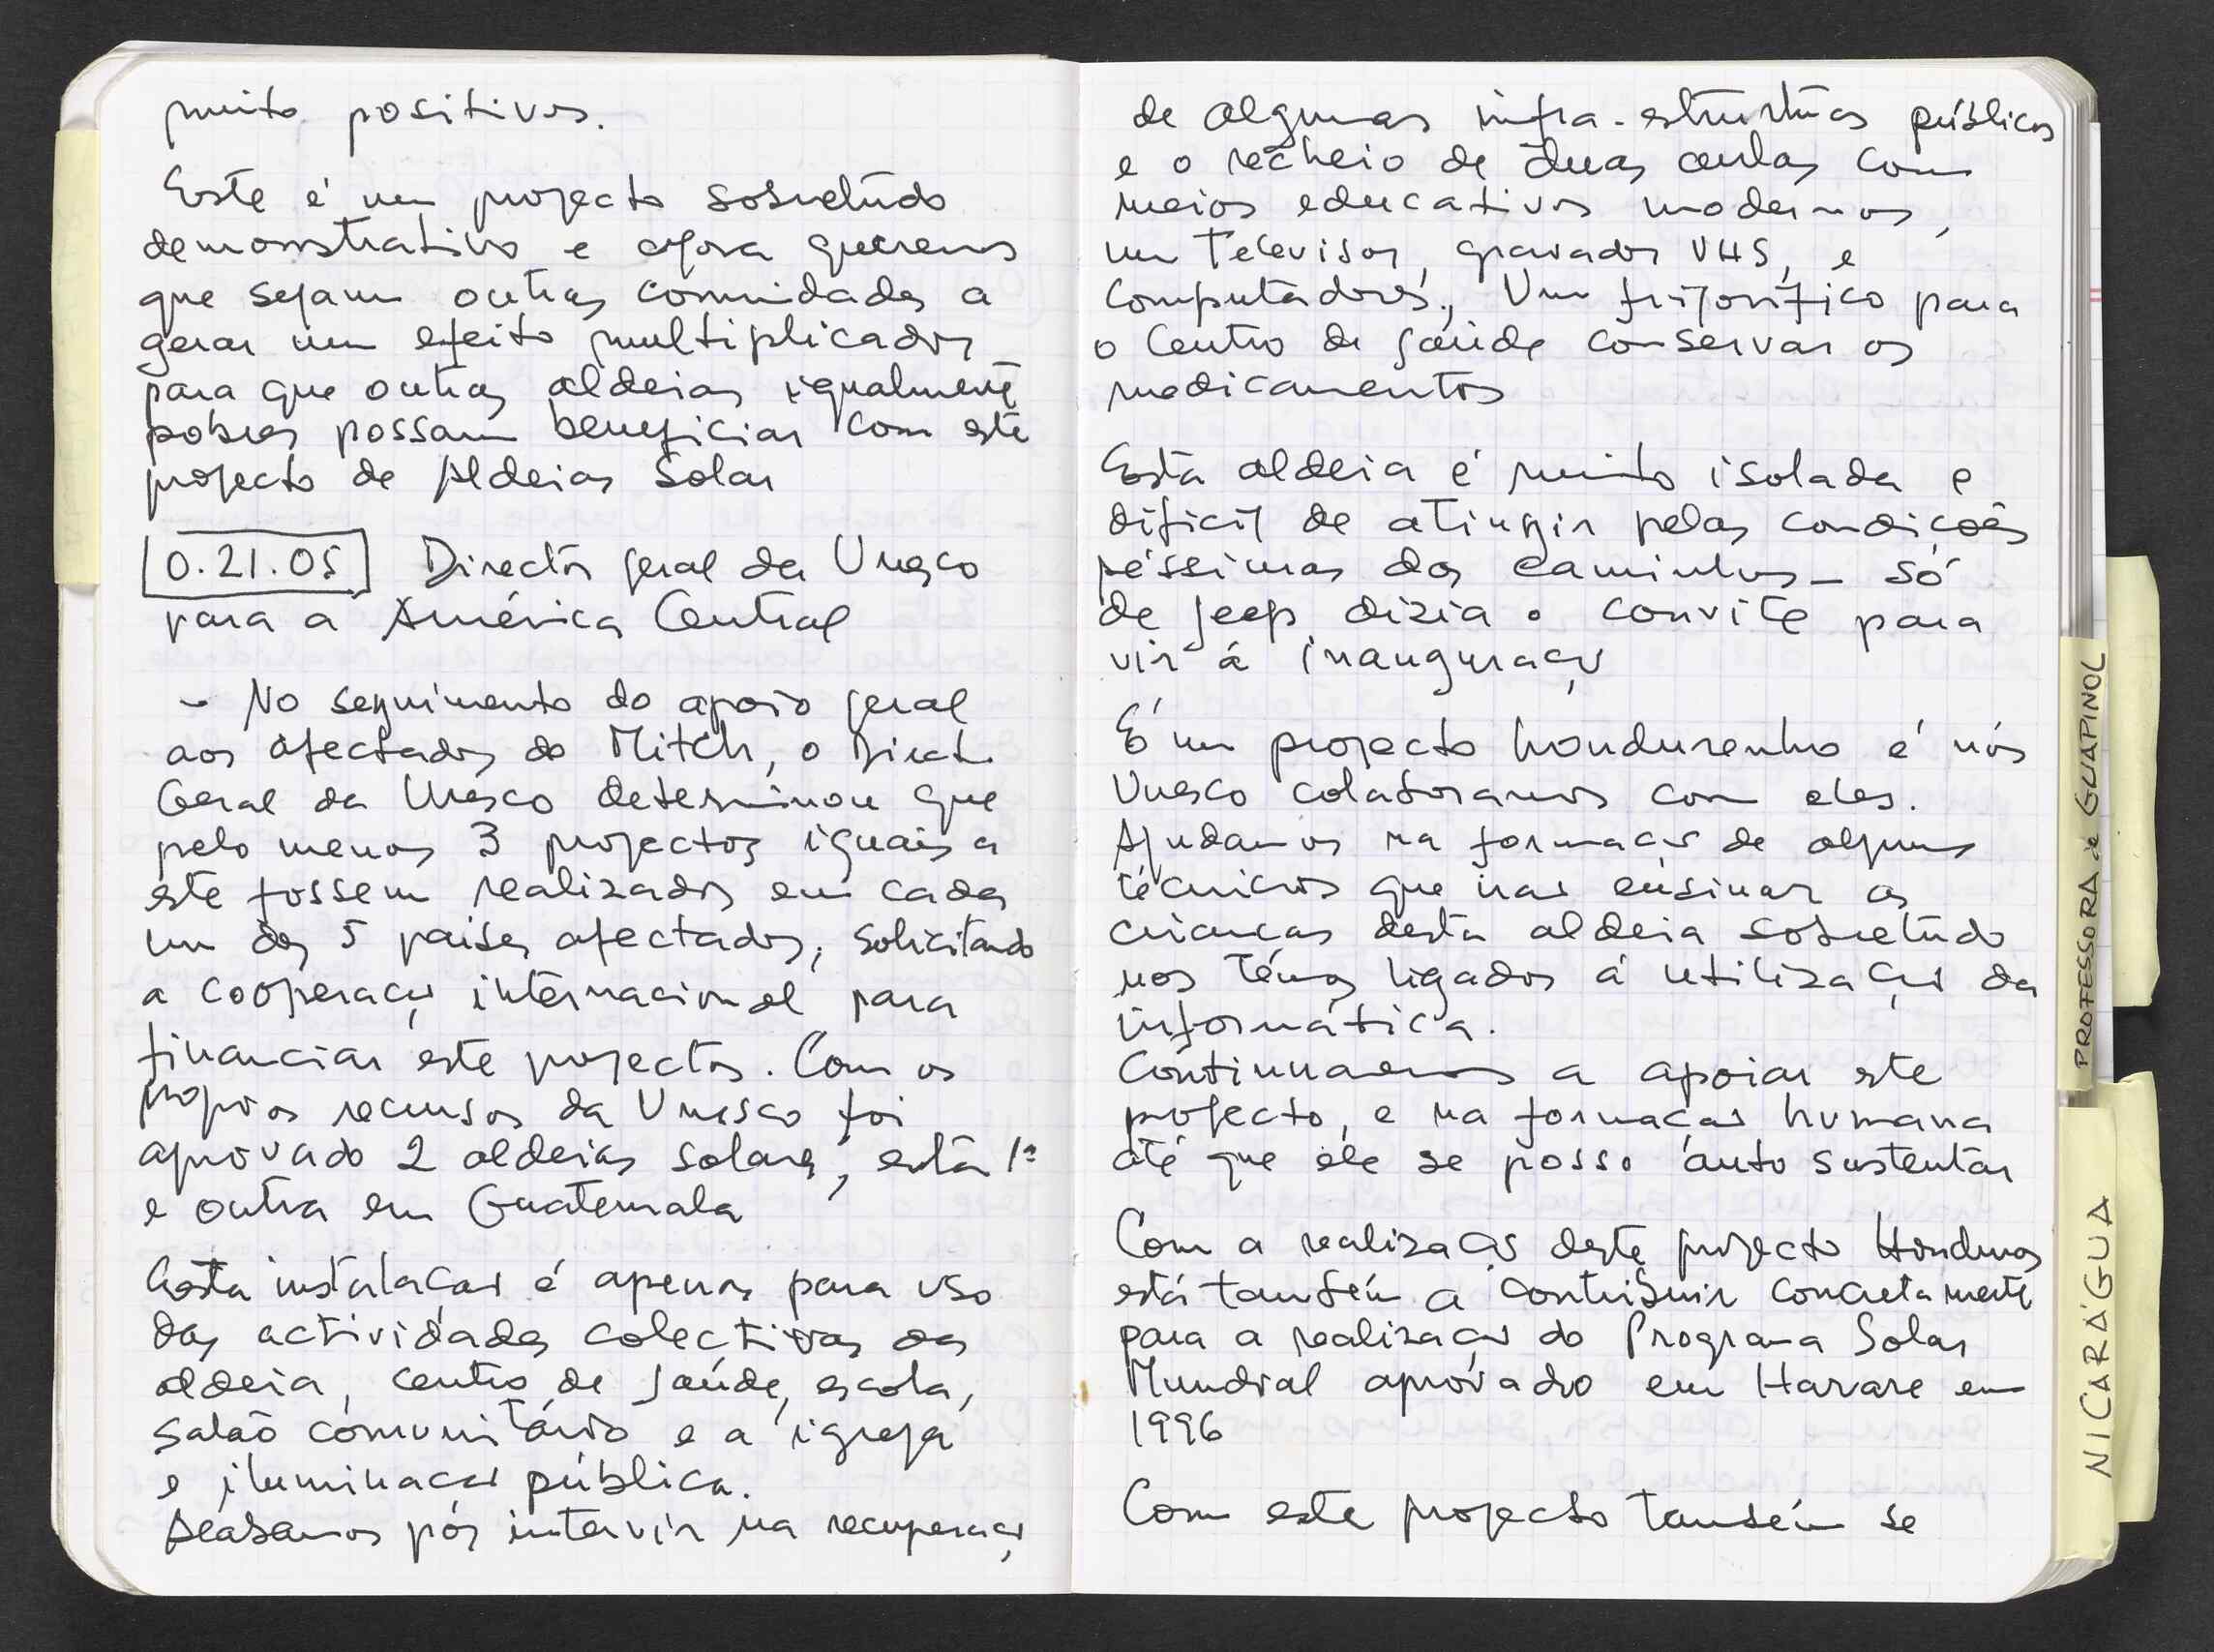 muito positivos.
Este é um projecto sobretudo
demonstrativo e agora queremos
que sejam outras comunidades a
gerar um efeito multiplicador
para que outras aldeias igualmente
pobres possam beneficiar com este
projecto de Aldeias Solar
0.21.05 Director geral da Unesco
para a América Central
- No seguimento do apoio geral
aos afectados do Mitch, o Direct.
Geral da Unesco determinou que
pelo menos 3 projectos iguais a
este fossem realizados em cada
um dos 5 países afectados, solicitando
a cooperação internacional para
financiar este projectos. Com os
próprios recursos da Unesco foi
aprovado 2 aldeias solares, esta 1ª
e outra em Guatemala
Esta instalação é apenas para uso
das actividades colectivas da
aldeia, centro de saúde, escola,
salão comunitário e a igreja
e iluminação pública.
Acabamos por intervir na recuperação
de algumas infra-estruturas públicas
e o recheio de duas aulas com
meios educativos modernos,
um televisor, gravador VHS, e
computadores, Um frigorífico para
o Centro de saúde conservar os
medicamentos
Esta aldeia é muito isolada e
dificil de atingir pelas condições
péssimas dos caminhos - só
de jeep dizia o convite para
vir á inauguração
É um projecto hondurenho e nós
Unesco colaboramos com eles.
Ajudamos na formação de alguns
técnicos que irão ensinar as
crianças desta aldeia sobretudo
nos temas ligados á utilização da
informática.
Continuaremos a apoiar este
projecto, e na formação humana
até que ele se possa auto sustentar
Com a realização deste projecto Honduras
está também a contribuir concretamente
para a realização do Programa Solar
Mundial aprovado em Harare em
1996
Com este projecto também se
PROFESSORA de GUAPINOL
NICARÁGUA